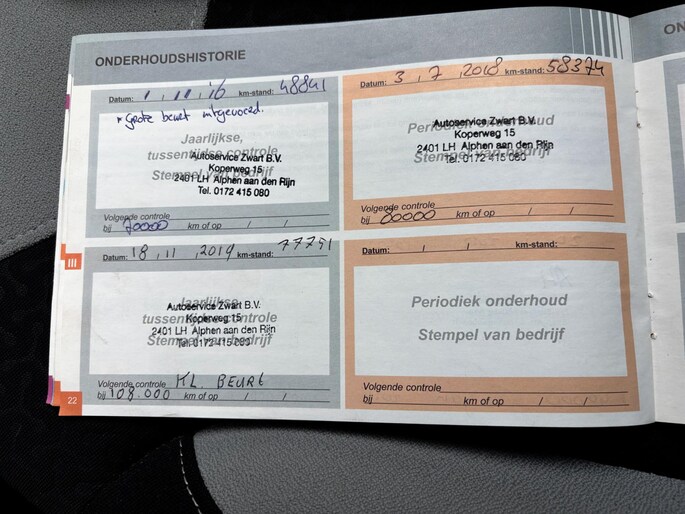 ONDERHOUDSHISTORIE
ON
Datum: 1 / 11 / 16 km-stand: 48841
* Grote beurt uitgevoerd.
Jaarlijkse,
tussentijdse controle
Stempel van bedrijf
Autoservice Zwart B.V.
Koperweg 15
2401 LH Alphen aan den Rijn
Tel. 0172 415 080
Volgende controle
bij 70000 km of op / /
Datum: 3 , 7 , 2018 km-stand: 58374
Periodiek onderhoud
Stempel van bedrijf
Autoservice Zwart B.V.
Koperweg 15
2401 LH Alphen aan den Rijn
Tel. 0172 415 080
Volgende controle
bij 80000 km of op / /
III
Datum: 18 , 11 , 2019 km-stand: 77751
Jaarlijkse,
tussentijdse controle
Stempel van bedrijf
Autoservice Zwart B.V.
Koperweg 15
2401 LH Alphen aan den Rijn
Tel. 0172 415 080
Volgende controle KL. BEURT
bij 108.000 km of op / /
Datum: / / km-stand:
Periodiek onderhoud
Stempel van bedrijf
Volgende controle
bij km of op / /
22